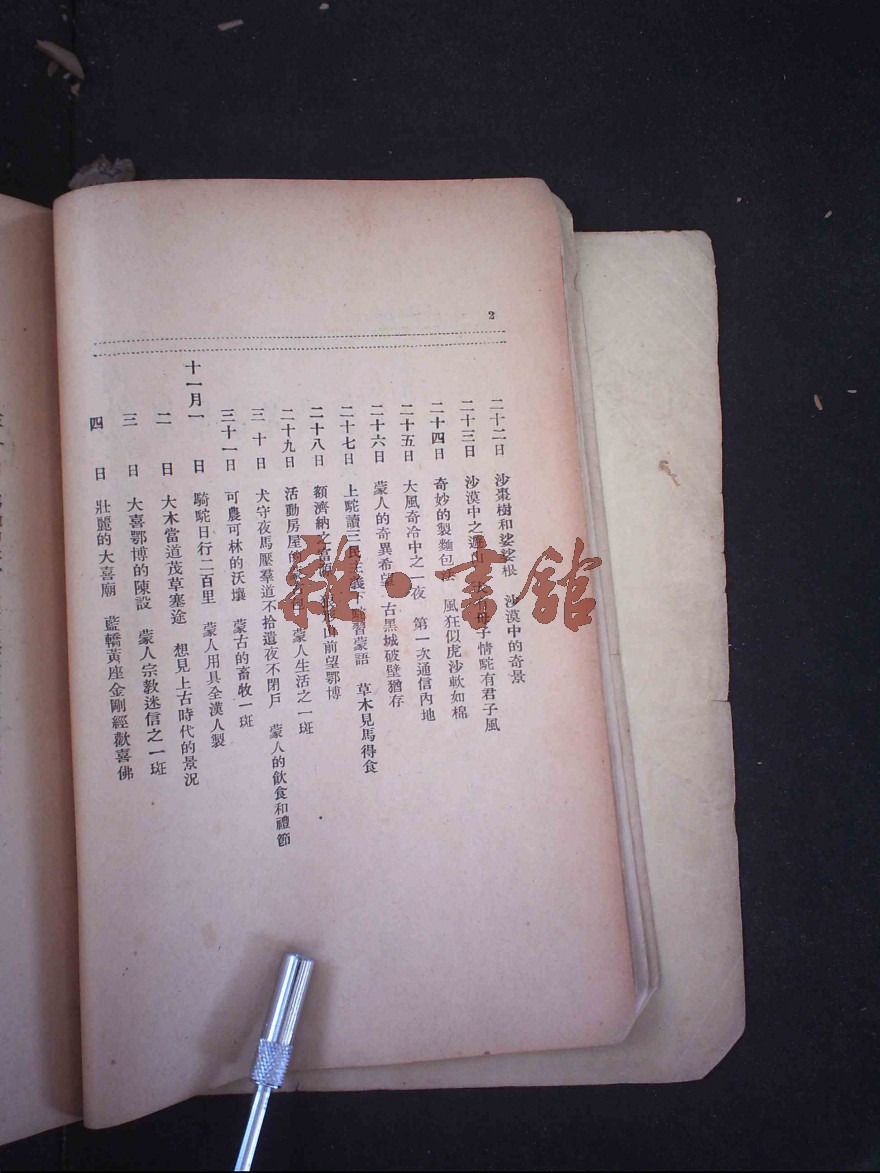 2
二十二日 沙棗樹和娑娑根 沙漠中的奇景
二十三日 沙漠中之 山 有母子情駝有君子風
二十四日 奇妙的製麵包 風狂似虎沙軟如棉
二十五日 大風奇冷中之一夜 第一次通信內地
二十六日 蒙人的奇異希望 古黑城破壁猶存
二十七日 上駝讀三民主義下 習蒙語 草木見馬得食
二十八日 額濟納之富 山前望鄂博
二十九日 活動房屋的蒙古包 蒙人生活之一斑
三十日 犬守夜馬壓羣道不拾遺夜不閉戶 蒙人的飲食和禮節
三十一日 可農可林的沃壤 蒙古的畜牧一斑
十一月一日 騎駝日行二百里 蒙人用具全漢人製
二日 大木當道茂草塞途 想見上古時代的景況
三日 大喜鄂博的陳設 蒙人宗教迷信之一斑
四日 壯麗的大喜廟 藍轎黃座金剛經歡喜佛
雜·書館